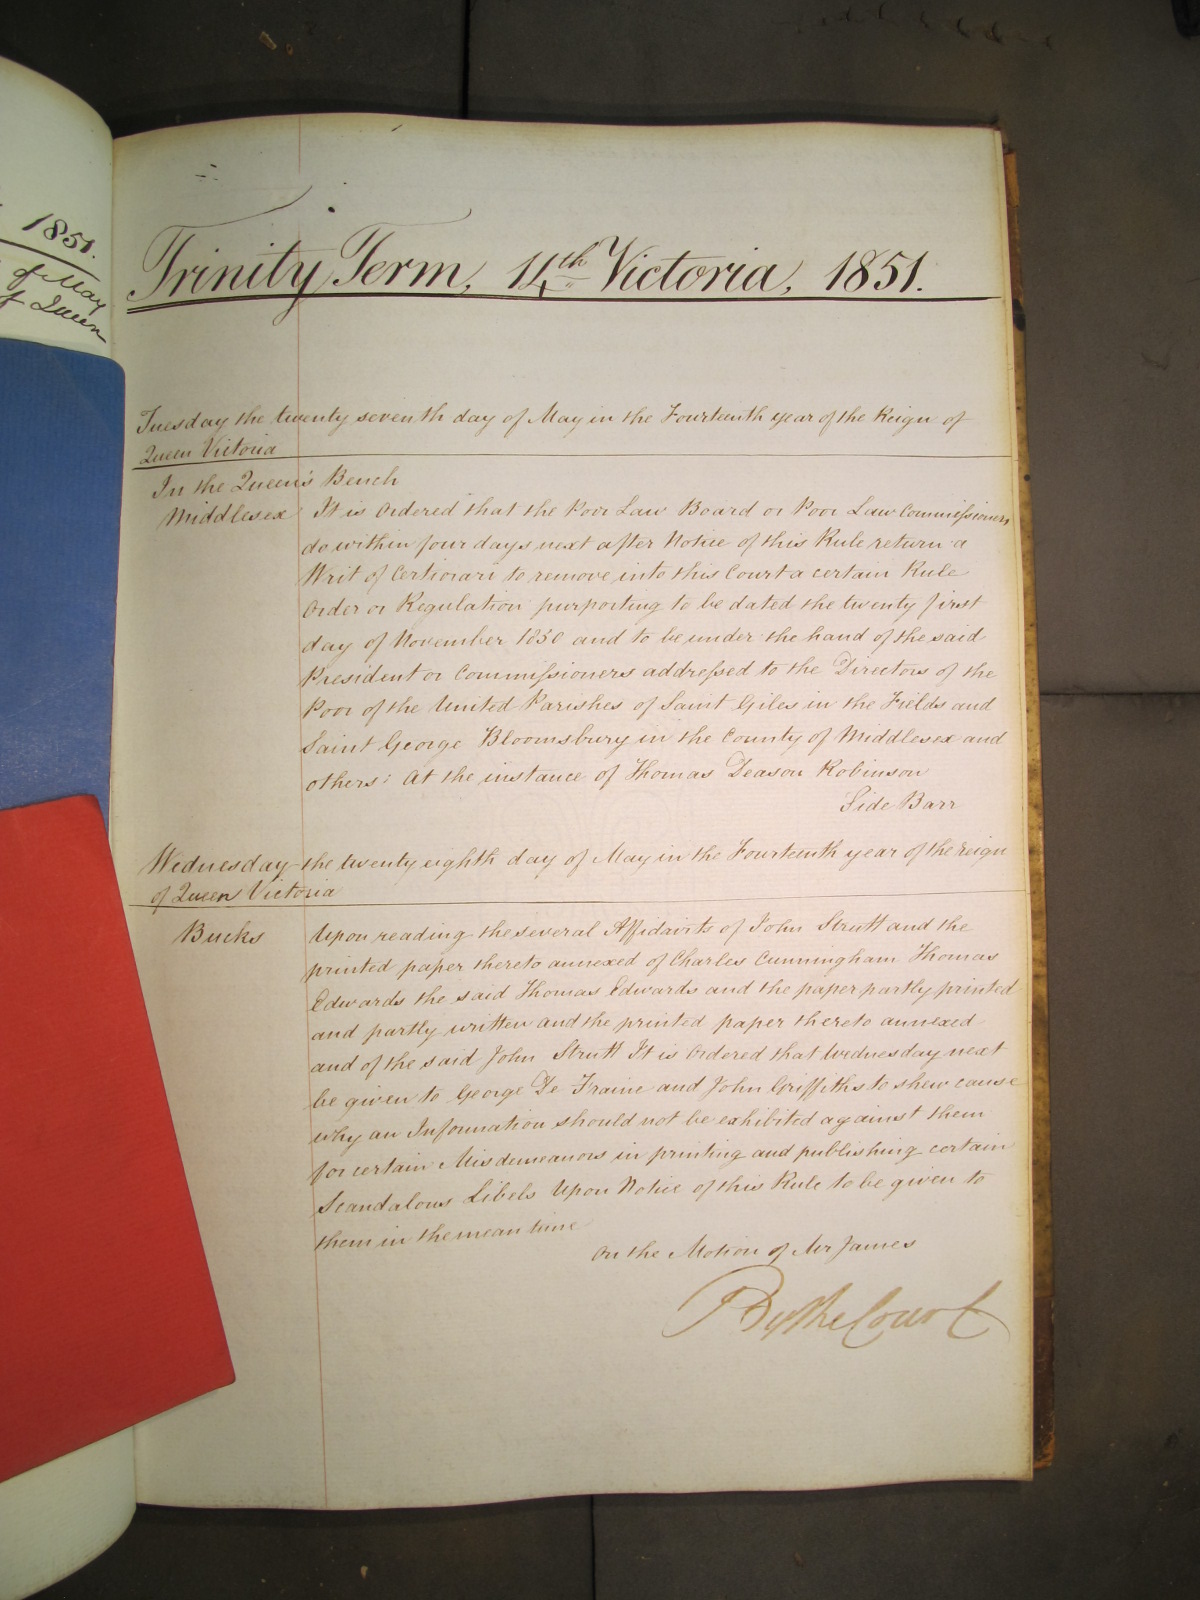 1851.
of May
of Queen
Trinity Term, 14th Victoria, 1851.
Tuesday the twenty seventh day of May in the Fourteenth year of the Reign of
Queen Victoria
In the Queen's Bench
Middlesex It is Ordered that the Poor Law Board or Poor Law Commissioners
do within four days next after Notice of this Rule return a
Writ of Certiorari to remove into this Court a certain Rule
Order or Regulation purporting to be dated the twenty first
day of November 1850 and to be under the hand of the said
President or Commissioners addressed to the Directors of the
Poor of the United Parishes of Saint Giles in the Fields and
Saint George Bloomsbury in the County of Middlesex and
others: At the instance of Thomas Deason Robinson
Side Barr
Wednesday the twenty eighth day of May in the Fourteenth year of the reign
of Queen Victoria
Bucks Upon reading the several Affidavits of John Strutt and the
printed paper thereto annexed of Charles Cunningham Thomas
Edwards the said Thomas Edwards and the paper partly printed
and partly written and the printed paper thereto annexed
and of the said John Strutt It is Ordered that Wednesday next
be given to George De Fraine and John Griffiths to shew cause
why an Information should not be exhibited against them
for certain Misdemeanors in printing and publishing certain
Scandalous Libels Upon Notice of this Rule to be given to
them in the mean time
On the Motion of Mr James
By the Court